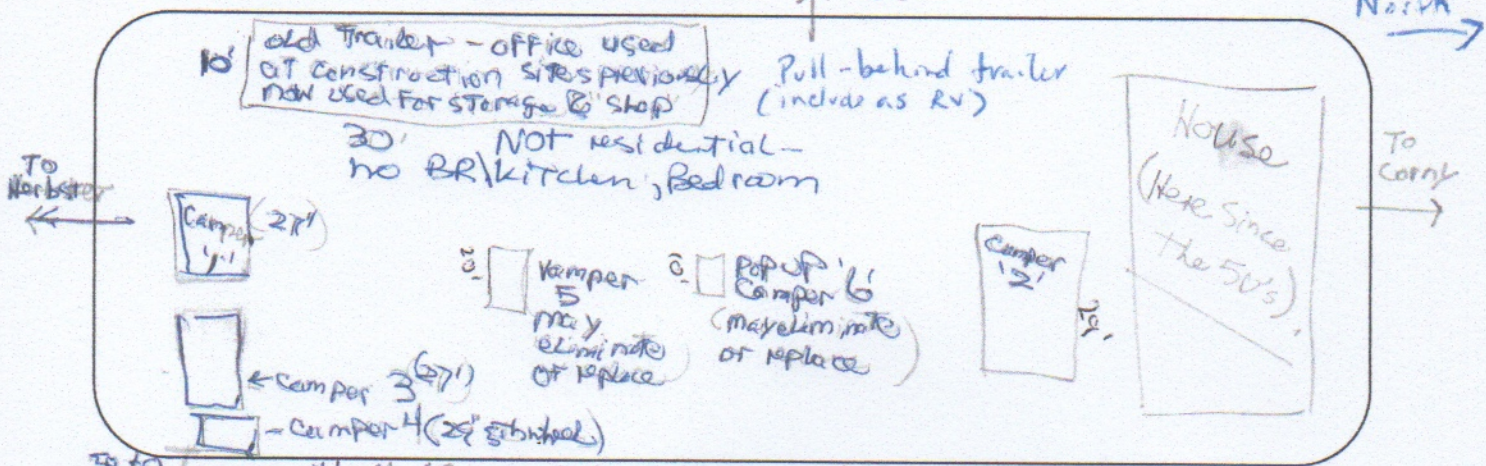 North
10'
old Trailer - office used
at construction sites previously
now used for storage & shop
Pull-behind trailer
(include as RV)
30' NOT residential -
no BR\kitchen, Bedroom
House
(Here Since
the 50's)
To
Corny
To
Herbster
Camper
'1'
(27')
20'
Kamper
5
may
eliminate
or replace
10'
Popup '6'
Camper
(may eliminate
or replace)
Camper
'2'
29'
← Camper 3 (27')
- Camper 4 (29' 5th wheel)